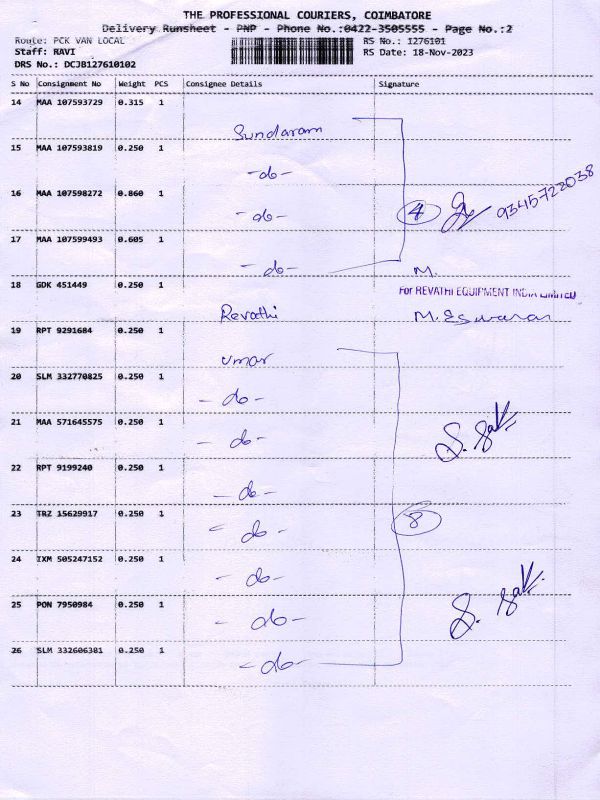 THE PROFESSIONAL COURIERS, COIMBATORE
Delivery Runsheet - PNP - Phone No.:0422-3505555 - Page No.:2
Route: PCK VAN LOCAL
RS No.: 1276101
Staff: RAVI
RS Date: 18-Nov-2023
DRS No.: DCJB127610102
S No Consignment No Weight PCS Consignee Details Signature
14 MAA 107593729 0.315 1 Sundaram
15 MAA 107593819 0.250 1 -do-
16 MAA 107598272 0.860 1 -do- 4 9345722038
17 MAA 107599493 0.605 1 -do-
M.
18 GDK 451449 0.250 1 Revathi
For REVATHI EQUIPMENT INDIA LIMITED
M. Eswaran
19 RPT 9291684 0.250 1 Umar
20 SLM 332770825 0.250 1 -do-
21 MAA 571645575 0.250 1 -do-
22 RPT 9199240 0.250 1 -do-
23 TRZ 15629917 0.250 1 -do- 8
24 IXM 505247152 0.250 1 -do-
25 PON 7950984 0.250 1 -do-
26 SLM 332606301 0.250 1 -do-